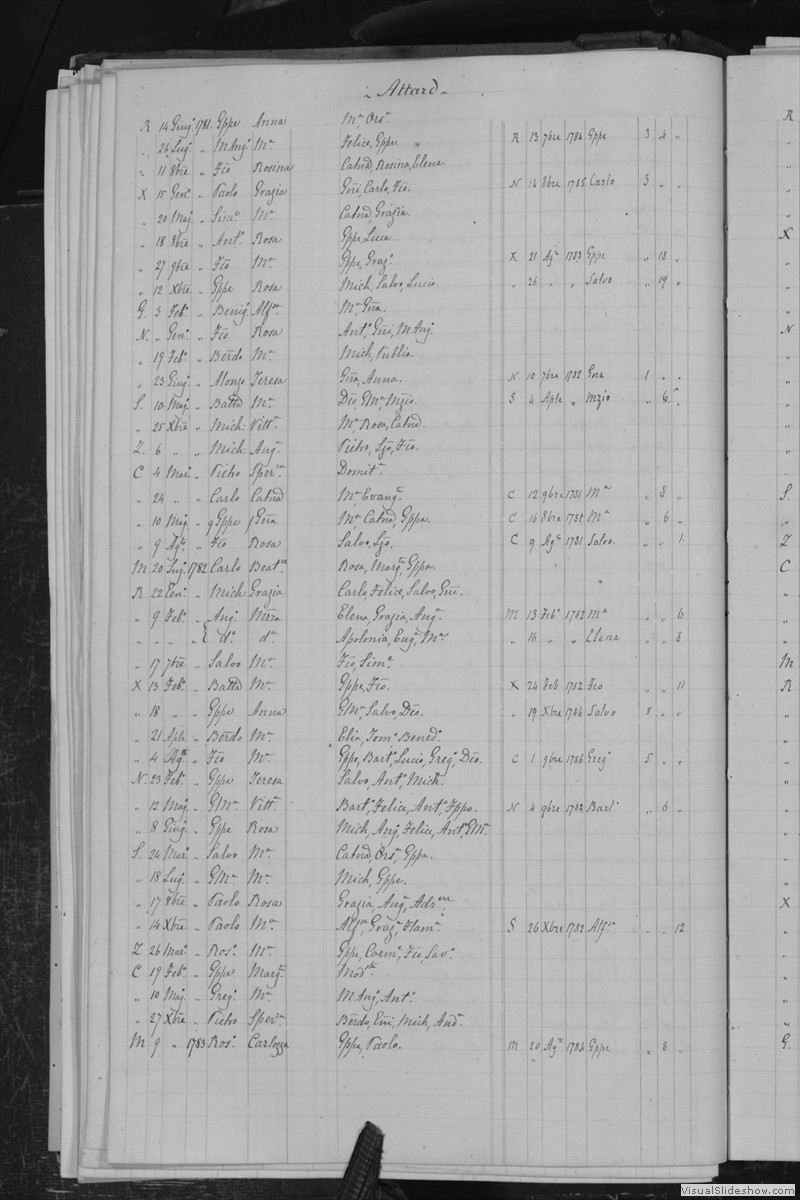 Attard
R 14 Giug. 1781 Gppe Anna Mª Orsª
" 26 Lug. " MAng. Mª Felice, Gppe. R 13 7bre 1784 Gppe 3 4 "
" 11 8bre " Fco Rosina Catnd, Rosina, Elena
X 15 Genº " Paolo Grazia Gni, Carlo, Fco. N 14 8bre 1785 Carlo 3 " "
" 20 Mag. " Simº Mª Catnd, Grazia.
" 18 8bre " Antº Rosa Gppe, Luca.
" 27 9bre " Fco Mª Gppe, Grazª X 21 Agº 1783 Gppe " 18 "
" 12 Xbre " Gppe Rosa Mich, Salvo, Lucio. " 26 " " Salvo " 19 "
G. 3 Febº " Benigº Alfna Mª Gna.
N. " Genº " Fco Rosa Antº Gni, MAng.
" 19 Febº " Berdo Mª Mich, Publio.
" 23 Giug. " Alonzo Teresa Gna, Anna. N 10 7bre 1782 Gna 1 " "
S. 10 Mag. " Batta Mª Dco, GMª, Mzio. S 4 Aple " Mzio " 6 "
" 25 Xbre " Mich: Vittª Mª, Rosa, Catnd.
Z. 6 " " Mich: Angª Pietro, Fco.
C 4 Marº " Pietro Sperza Domitª
" 24 " " Carlo Catnd Mª Evangª C 12 9bre 1781 Mª " 8 "
" 10 Mag. " Gppe Gna Mª Catnd, Gppa. C 16 8bre 1781 Mª " 6 "
" 9 Agº " Fco Rosa Salvo, C 9 Agº 1781 Salvo. " " 1
M 20 Lug. 1782 Carlo Beatce Rosa, Margª, Gppa.
R 22 Genº " Mich: Grazia Carlo, Felice, Salvo, Gni.
" 9 Febº " Angº Nizza Elena, Grazia, Angª M 13 Febº 1782 Mª " " 6
" " " " dº dª Apolonia, Eugª, Mª " 16 " " Elena " " 8
" 17 7bre " Salvo Mª Fco, Simº
X 13 Febº " Batta Mª Gppe, Fco. X 24 Feb 1782 Fco " " 11
" 18 " " Gppe Anna GMª, Salvo, Dco. " 19 Xbre 1786 Salvo 5 " "
" 21 Aple " Berdo Mª Elia, Tomº Benedº
" 4 Agº " Fco Mª Gppe, Bartº, Lucio, Gregº, Dco. C 1 9bre 1786 Gregº 5 " "
N. 23 Febº " Gppe Teresa Salvo, Antº, Mich.
" 12 Mag. " GMª Vittª Bartº Felice, Antº, Fppo. N 4 9bre 1782 Bartº " 6 "
" 8 Giug. " Gppe Rosa Mich, Angº, Felice, Antº, GMª
S. 24 Marº " Salvo Mª Catnd, Orsª, Gppa.
" 18 Lug. " GMª Mª Mich, Gppe.
" 17 8bre " Paolo Rosa Grazia, Angª, Adrna
" 14 Xbre " Paolo Mª Alfna, Grazª, Flamª S 26 Xbre 1782 Alfna " " 12
Z 26 Marº " Rosº Mª Gppe, Carmº, Fco, Savº
C 19 Febº " Gppe Margª Modsta
" 10 Mag. " Gregº Mª MAng, Antº
" 27 Xbre " Pietro Sperza Berdo, Eni, Mich, Andª
M 9 " 1783 Rosº Carlozza Gppe, Paolo. M 20 Agº 1784 Gppe " 8 "
R
X
N
S
Z
C
M
R
X
G.
VisualSlideshow.com